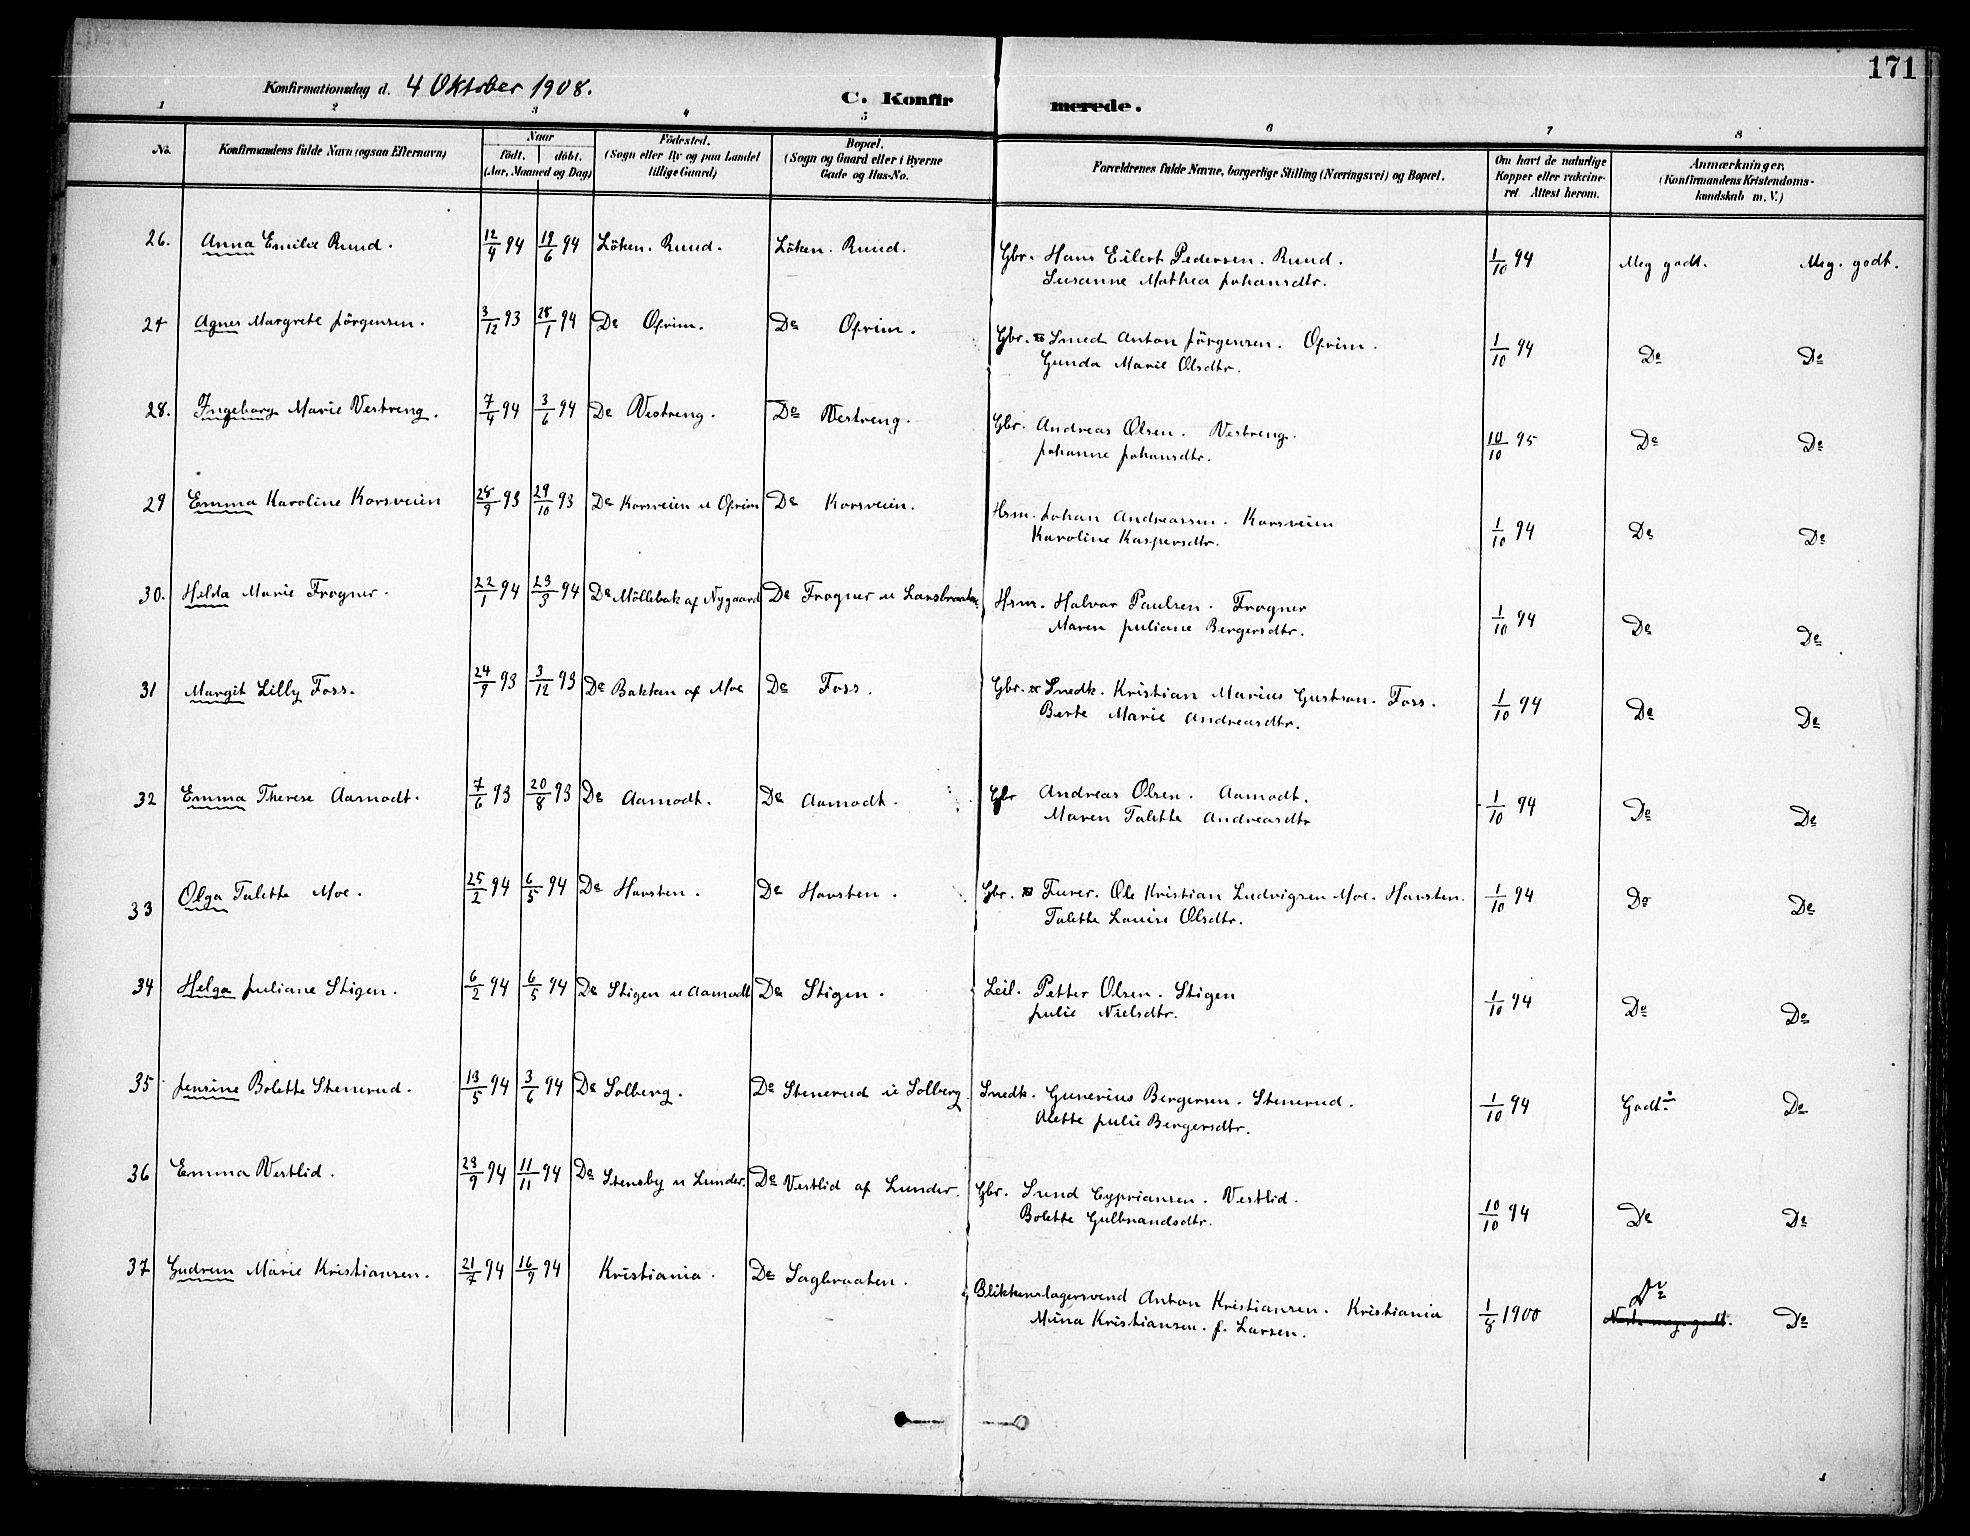 171
Konfirmationsdag d. 4 Oktober 1908.
C. Konfir merede.
1 2 3 4 5 6 7 8
No. Konfirmandens fulde Navn (ogsaa Efternavn) Naar født. døbt. (Aar, Maaned og Dag) Fødested. (Sogn eller By og paa Landet tillige Gaard) Bopæl. (Sogn og Gaard eller i Byerne Gade og Hus-No. Forældrenes fulde Navne, borgerlige Stilling (Næringsvei) og Bopæl. Om havt de naturlige Kopper eller vakcineret Attest herom. Anmærkninger, (Konfirmandens Kristendomskundskab m. V.)
26. Anna Emilie Ruud. 12/4 94 19/6 94 Löken. Ruud. Löken. Ruud. Gbr. Hans Eilert Pedersen. Ruud. 1/10 94 Meg godt. Meg. godt.
Susanne Mathea Johansdtr.
27 Agnes Margrete Jörgensen. 3/12 93 28/1 94 Do Ofrim. Do Ofrim. Gbr. & Smed Anton Jörgensen. Ofrim. 1/10 94 Do Do
Gunda Marie Olsdtr.
28. Ingeborg Marie Vestreng. 7/4 94 3/6 94 Do Vestreng. Do Vestreng. Gbr. Andreas Olsen. Vestreng. 10/10 95 Do Do
Johanne Johansdtr.
29 Emma Karoline Korsveien 28/9 93 29/10 93 Do Korsveien u Ofrim Do Korsveien. Hsm. Johan Andreassen. Korsveien 1/10 94 Do Do
Karoline Kaspersdtr.
30. Helda Marie Frogner. 22/1 94 23/3 94 Do Möllebak af Nygaard Do Frogner u Larsbraaten Hsm. Halvor Paulsen. Frogner 1/10 94 Do Do
Maren Juliane Bergersdtr.
31 Margit Lilly Foss. 24/9 93 3/12 93 Do Bakken af Moe Do Foss. Gbr. & Snedk. Kristian Marius Gustson. Foss. 1/10 94 Do Do
Berte Marie Andreasdtr.
32 Emma Therese Aamodt. 7/6 93 20/8 93 Do Aamodt. Do Aamodt. Gbr Andreas Olsen. Aamodt. 1/10 94 Do Do
Maren Talette Andreasdtr
33 Olga Talette Moe. 25/2 94 6/5 94 Do Havsten. Do Havsten. Gbr. & Furer. Ole Kristian Ludvigsen Moe. Havsten. 1/10 94 Do Do
Talette Louise Olsdtr.
34 Helga Juliane Stigen. 6/2 94 6/5 94 Do Stigen u Aamodt Do Stigen. Leil. Petter Olsen. Stigen 1/10 94 Do Do
Julie Nielsdtr.
35 Jensine Bolette Stenerud. 13/5 94 3/6 94 Do Solberg. Do Stenerud u Solberg. Snedk. Gunerius Bergersen. Stenerud. 1/10 94 Godt. Do
Alette Julie Bergersdtr.
36 Emma Vestlid. 23/9 94 11/11 94 Do Stensby u Lunder. Do Vestlid af Lunder. Gbr. Svend Cypriansen. Vestlid. 10/10 94 Do Do
Bolette Gulbrandsdtr.
37 Gudrun Marie Kristiansen. 21/7 94 16/9 94 Kristiania. Do Sagbraaten. Blikkenslagersvend Anton Kristiansen. Kristiania 1/8 1900 Do Do
Mina Kristiansen. f. Larsen.